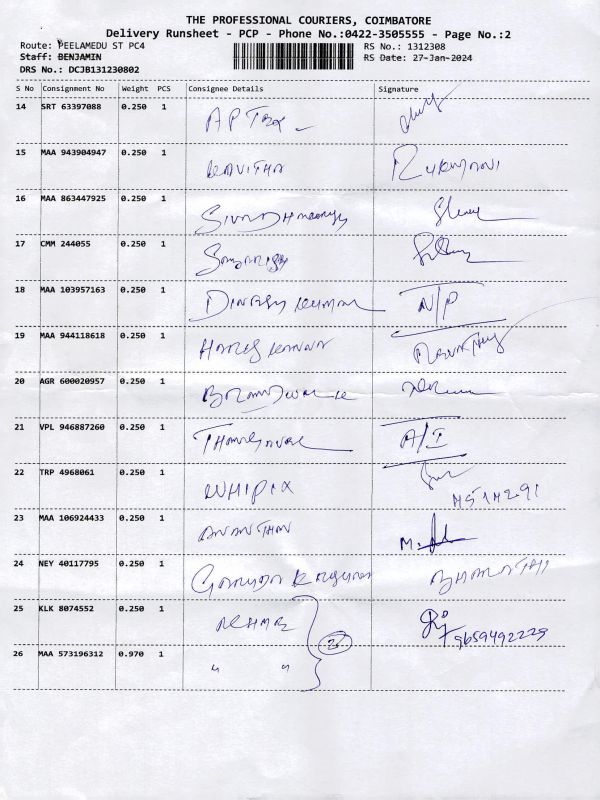 THE PROFESSIONAL COURIERS, COIMBATORE
Delivery Runsheet - PCP - Phone No.:0422-3505555 - Page No.:2
Route: PEELAMEDU ST PC4 RS No.: 1312308
Staff: BENJAMIN RS Date: 27-Jan-2024
DRS No.: DCJB131230802
S No Consignment No Weight PCS Consignee Details Signature
14 SRT 63397088 0.250 1
15 MAA 943904947 0.250 1 KAVITHA RUKMANI
16 MAA 863447925 0.250 1
17 CMM 244055 0.250 1
18 MAA 103957163 0.250 1 DINESH KUMAR N/P
19 MAA 944118618 0.250 1
20 AGR 600020957 0.250 1
21 VPL 946887260 0.250 1 A/I
22 TRP 4968061 0.250 1 WHIPIX
23 MAA 106924433 0.250 1 ANANTHAN
24 NEY 40117795 0.250 1 BHARATHI
25 KLK 8074552 0.250 1 9659492229
26 MAA 573196312 0.970 1 " "